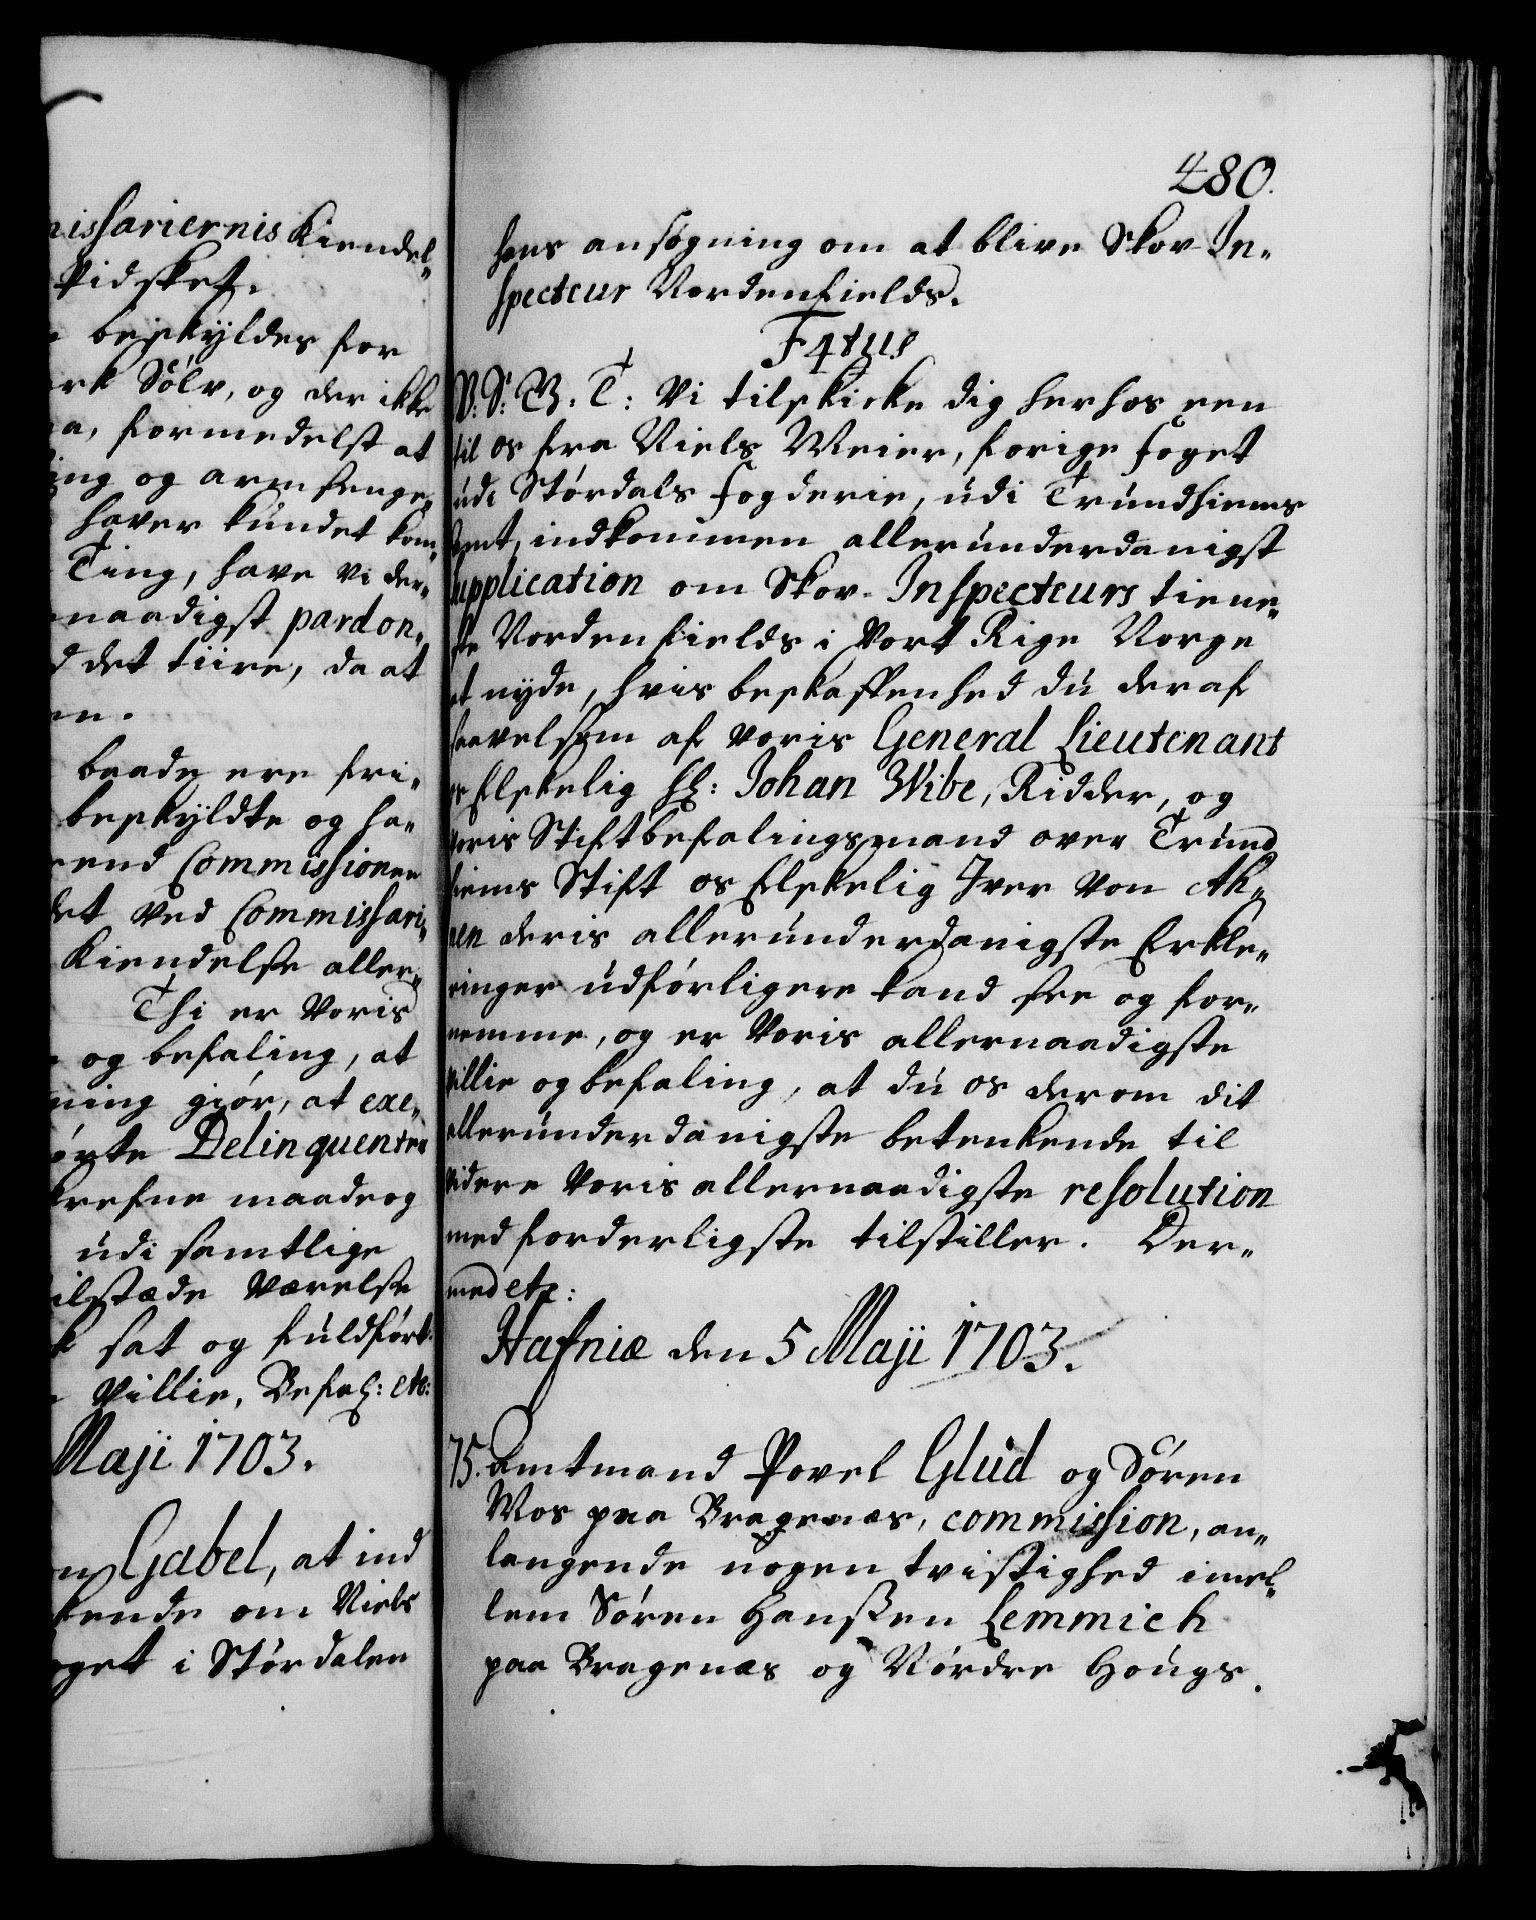 issariernis Kiendel„
Vidsket.
beskyldes for
ark Sölv, og der ikke
a, formedelst at
ing og armsenge„
haver kundet kom„
Ting, have Vi der„
naadigst pardon„
d det tiire, da at
en.
baade ere fri„
beskyldte og ha„
rend Commissionen
det ved Commissari„
Kiendelse aller„
Thi er Voris
og befaling, at
ning giör, at exe„
örte Delinquenter
krefne maade og
udi samtlige
ilstæde Værelse
sat og fuldfört.
Villie, Befah: etc:
Maji 1703.
Gabel, at ind
kende om Niels
oget i Stördalen
480.
hans ansøgning om at blive Skov-In„
specteur Nordenfields.
F4tus
V: S: G. T: Vi tilskicke dig herhos een
til os fra Niels Meier, forige foget
udi Stördals fogderie, udi Trundhiems
Amt, indkommen allerunderdanigst
Supplication om Skov-Inspecteurs tiene„
ste Nordenfields i Vort Rige Norge
at nyde, hvis beskaffenhed du deraf
saavelsom af Voris General Lieutenant
os Elskelig Hl: Johan Wibe, Ridder, og
Voris Stiftbefalingsmand over Trund
hiems Stift os Elskelig Iver Von Ah„
nen deris allerunderdanigste Erkle„
ringer udförligere kand see og for„
nemme, og er Voris allernaadigste
Villie og befaling, at du os derom dit
allerunderdanigste betenkende til
Videre Voris allernaadigste resolution
med forderligste tilstiller. Der„
med etc:
Hafniæ den 5 Maji 1703.
75. Amtmand Povel Glud og Sören
Mos paa Bragenæs, commission, an„
langende nogen tvistighed imel„
lem Sören Hanssen Lemmich
paa Bragenæs og Nördre Hougs.